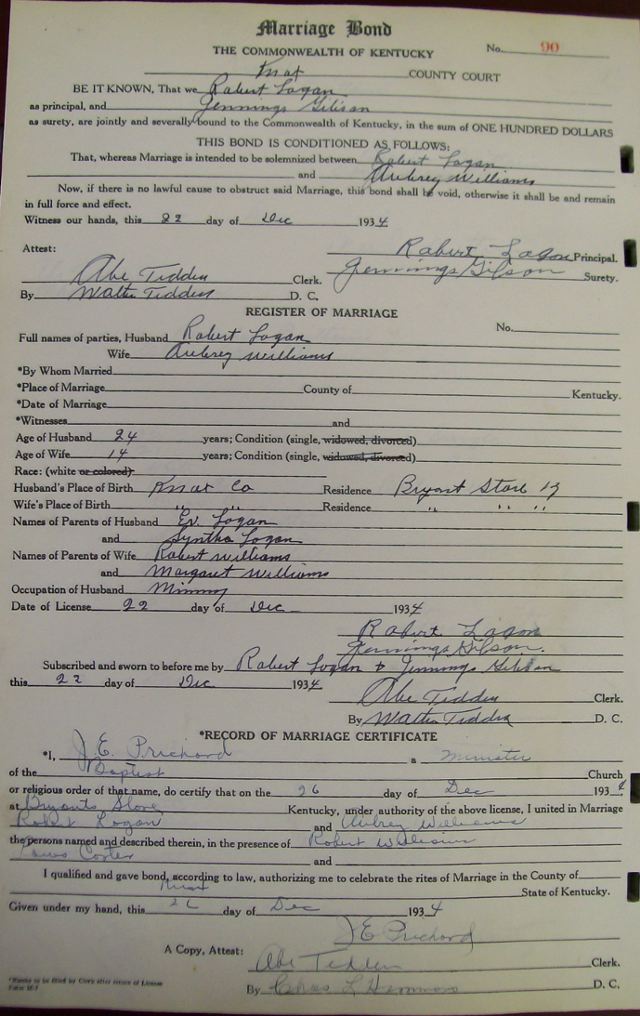 Marriage Bond
THE COMMONWEALTH OF KENTUCKY
No. 90
Knox COUNTY COURT
BE IT KNOWN, That we Robert Logan
as principal, and Jennings Gilison
as surety, are jointly and severally bound to the Commonwealth of Kentucky, in the sum of ONE HUNDRED DOLLARS
THIS BOND IS CONDITIONED AS FOLLOWS:
That, whereas Marriage is intended to be solemnized between Robert Logan
and Aubrey Williams
Now, if there is no lawful cause to obstruct said Marriage, this bond shall be void, otherwise it shall be and remain
in full force and effect.
Witness our hands, this 22 day of Dec 1934
Attest:
Robert Logan Principal.
Abe Tedders Clerk. Jennings Gilson Surety.
By Walter Tedders D. C.
REGISTER OF MARRIAGE
No.
Full names of parties, Husband Robert Logan
Wife Aubrey Williams
*By Whom Married
*Place of Marriage County of Kentucky.
*Date of Marriage
*Witnesses and
Age of Husband 24 years; Condition (single, widowed, divorced)
Age of Wife 14 years; Condition (single, widowed, divorced)
Race: (white or colored)
Husband's Place of Birth Knox Co Residence Bryant Store Ky
Wife's Place of Birth " " Residence " " "
Names of Parents of Husband Ev. Logan
and Syntha Logan
Names of Parents of Wife Robert Williams
and Margaret Williams
Occupation of Husband
Date of License 22 day of Dec 1934
Robert Logan
Jennings Gilson.
Subscribed and sworn to before me by Robert Logan & Jennings Gilison
this 22 day of Dec 1934
Abe Tedders Clerk.
By Walter Tedders D. C.
*RECORD OF MARRIAGE CERTIFICATE
*I, J. E. Prichard a Minister
of the Baptist Church
or religious order of that name, do certify that on the 26 day of Dec 1934
at Bryants Store Kentucky, under authority of the above license, I united in Marriage
Robert Logan and Aubrey Williams
the persons named and described therein, in the presence of Robert Williams
and
I qualified and gave bond, according to law, authorizing me to celebrate the rites of Marriage in the County of
Knox State of Kentucky.
Given under my hand, this 26 day of Dec 1934
J E Prichard
A Copy, Attest:
Abe Tedders Clerk.
By Chas L Hammons D. C.
*Blanks to be filled by Clerk after return of License